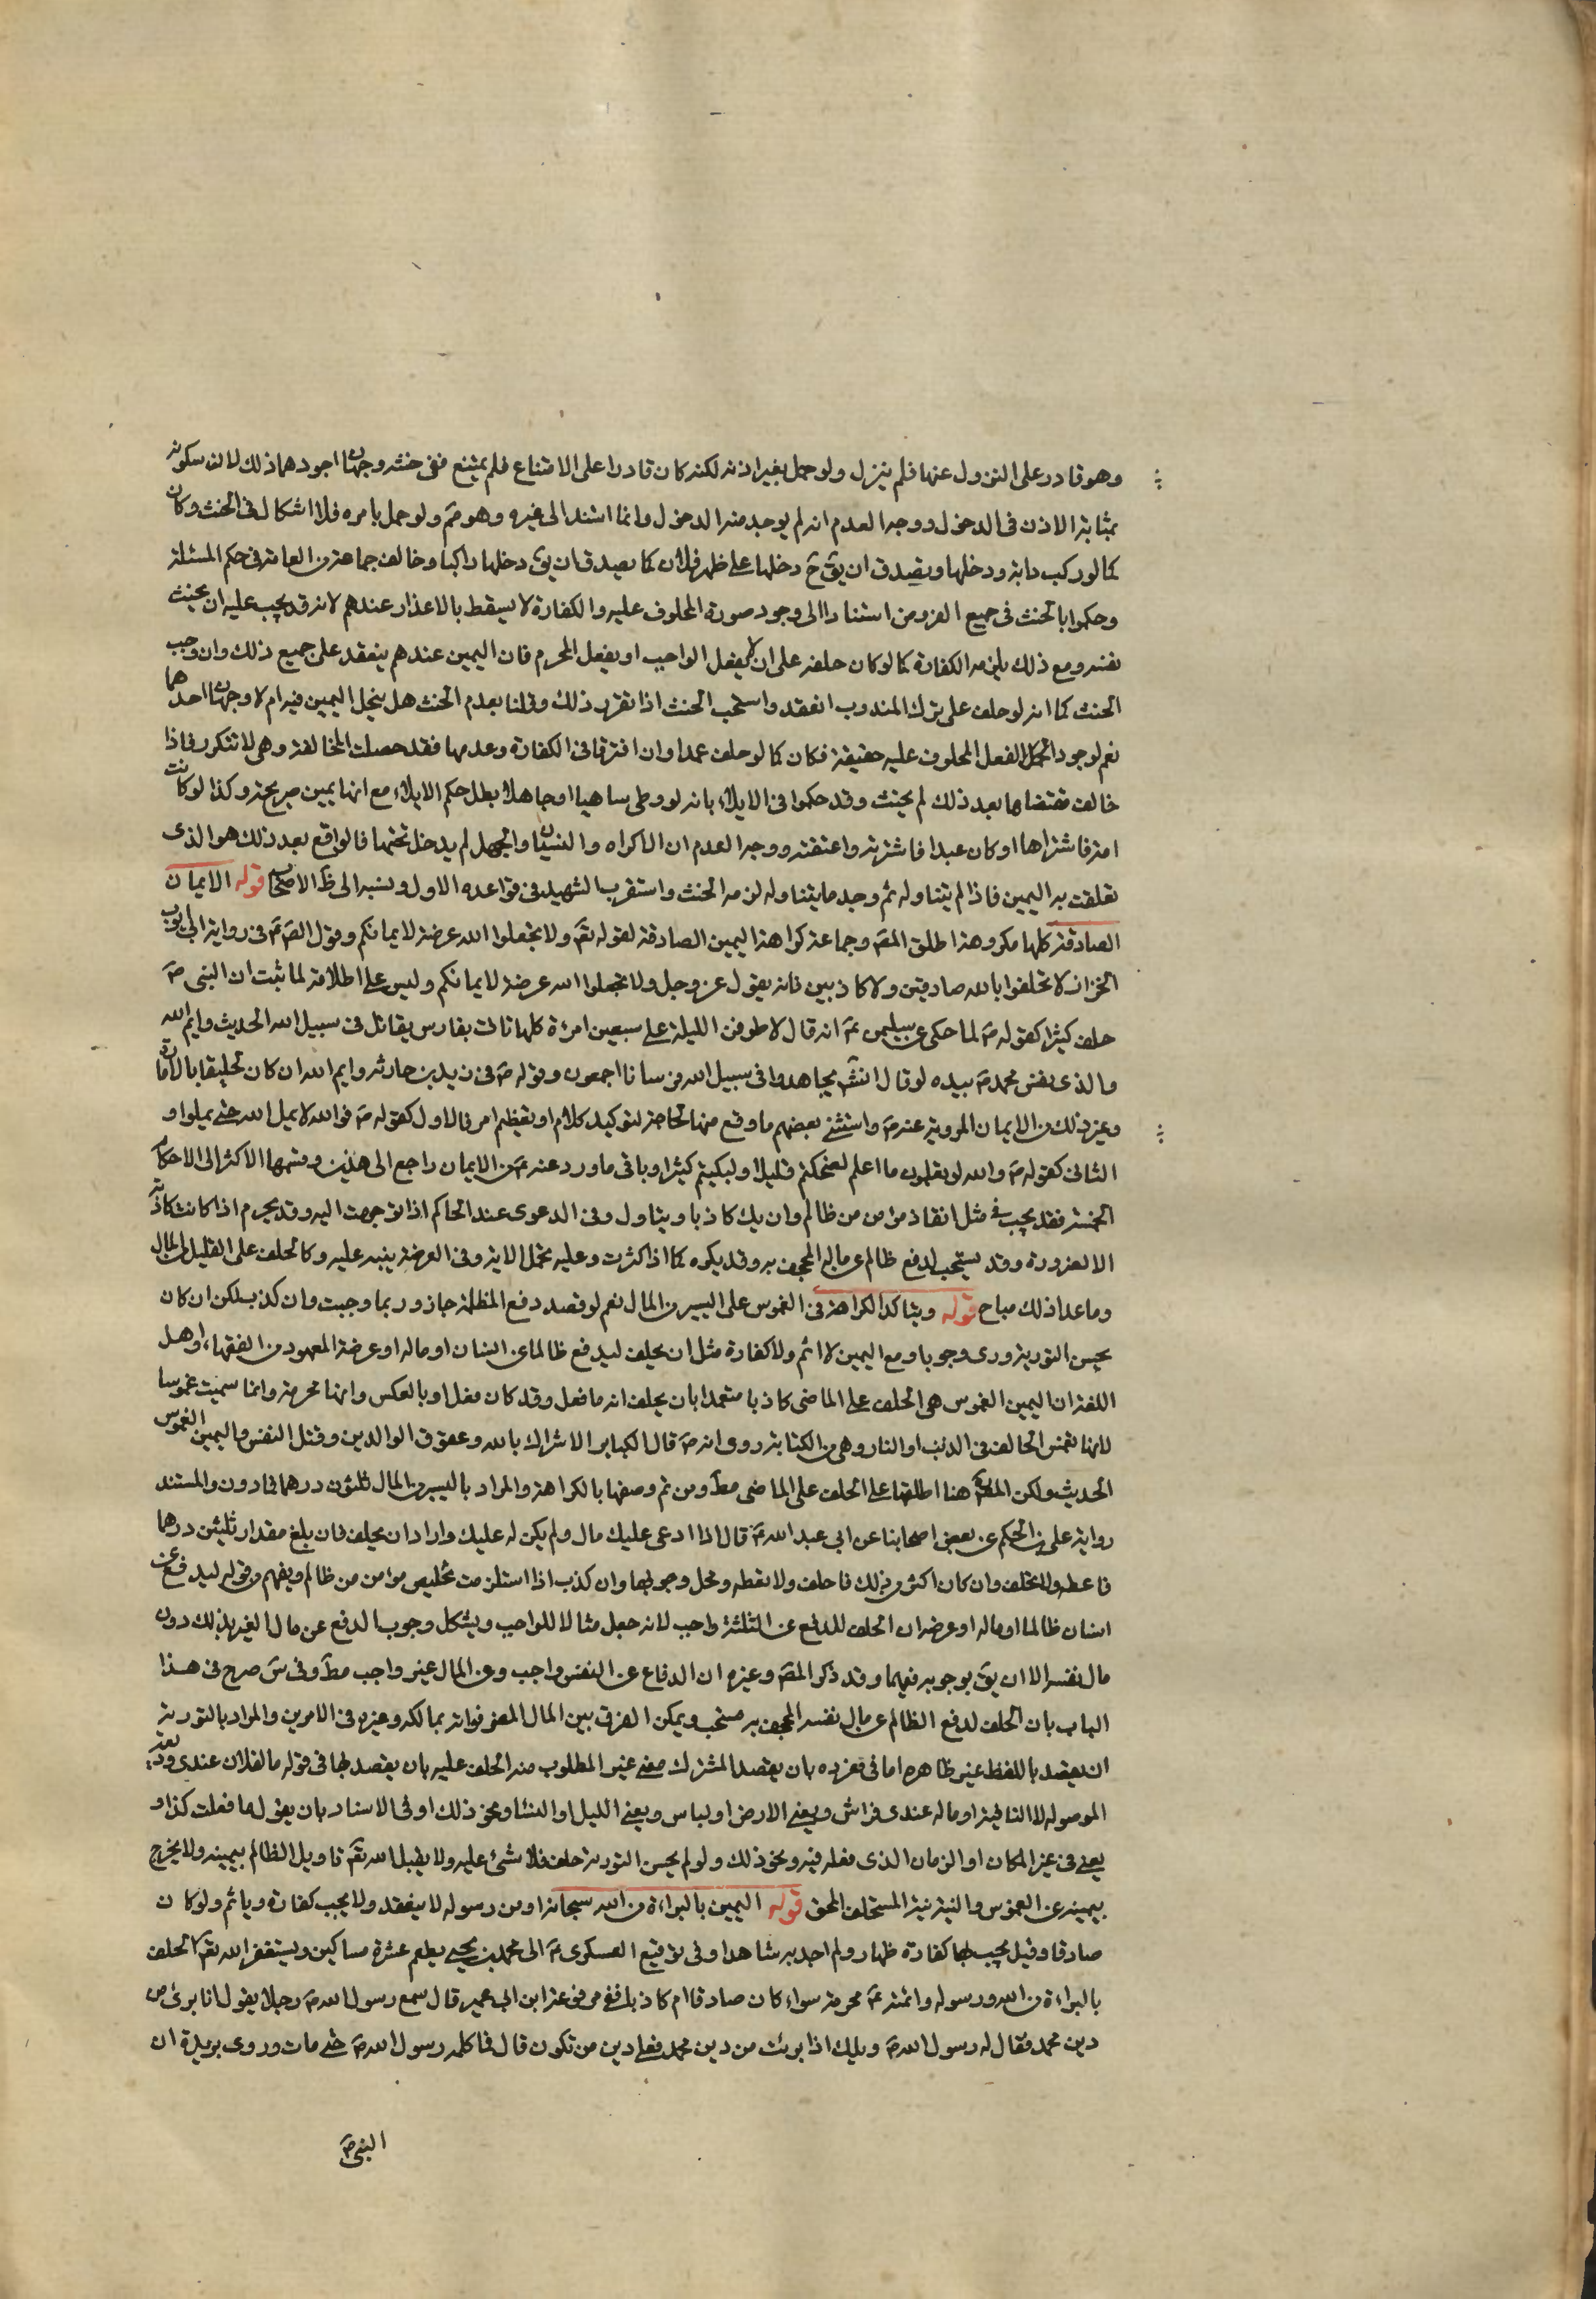 وهو قادر على النزول عنها فلم ينزل ولو حمل بغير اذنه لكنه كان قادرا على الامتناع فلم يمتنع ففى حنثه وجهان اجودهما ذلك لان سكوته
بمثابة الاذن فى الدخول ووجه العدم انه لم يوجد منه الدخول وانما استند الى غيره وهو مم ولو حمل بامره فلا اشكال فى الحنث وكان
كما لو ركب دابة ودخلها ويصدق ان يق ح دخلها على ظهر فلان كما يصدق ان يق دخلها راكبا وخالف جماعة من العامة فى حكم المسئلة
وحكموا بالحنث فى جميع الفروض استنادا الى وجود صورة المحلوف عليه والكفارة لا يسقط بالاعذار عندهم لانه قد يجب عليه ان يحنث
نفسه ومع ذلك يلزمه الكفارة كما لو كان حلفه على ان لا يفعل الواجب او يفعل المحرم فان اليمين عندهم ينعقد على جميع ذلك وان وجب
الحنث كما انه لو حلف على ترك المندوب انعقد واستحب الحنث اذا تقرر ذلك وقلنا بعدم الحنث هل ينحل اليمين فيه ام لا وجهان احدهما
نعم لوجود الفعل المحلوف عليه حقيقة فكان كما لو حلف عمدا وان افترقا فى الكفارة وعدمها فقد حصلت المخالفة وهى لا تتكرر فاذا
خالف مقتضاها بعد ذلك لم يحنث وقد حكموا فى الايلاء بانه لو وطى ساهيا او جاهلا بطل حكم الايلاء مع انها يمين صريحة وكذا لو كانت
امة فاشتراها او كان عبدا فاشترته واعتقته ووجه العدم ان الاكراه والنسيان والجهل لم يدخل تحتها فالواقع بعد ذلك هو الذى
تعلقت به اليمين فاذا لم يتناوله ثم وجد ما يتناوله لزمه الحنث واستقرب الشهيد فى قواعده الاول ونسبه الى ظ الاصحاب قوله الايمان
الصادقة كلها مكروهة اطلق المص وجماعة كراهة اليمين الصادقة لقوله تع ولا تجعلوا الله عرضة لايمانكم وقول الص ع فى رواية ابى ايوب
الخزاز لا تحلفوا بالله صادقين ولا كاذبين فانه يقول عز وجل ولا تجعلوا الله عرضة لايمانكم وليس على اطلاقه لما ثبت ان النبى ص
حلف كثيرا كقوله ص لما حكى عن سليمن ع انه قال لاطوفن الليلة على سبعين امرءة كلها تاتى بفارس يقاتل فى سبيل الله الحديث وايم الله
والذى نفس محمد ص بيده لو قال انش يجاهدوا فى سبيل الله فرسانا اجمعون وقوله ص فى زيد بن حارثه وايم الله ان كان لخليقا بالامارة
وغير ذلك من الايمان المروية عنه ص واستثنى بعضهم ما وقع منها لحاجة لتوكيد كلام او تعظيم امر فالاول كقوله ص فوالله لا يمل الله حتى يملوا و
الثانى كقوله ص والله لو تعلمون ما اعلم لضحكتم قليلا ولبكيتم كثيرا وباقى ما ورد عنه ص من الايمان راجع الى هذين وقسمها الاكثر الى الاحكام
الخمسة فقد يجب فى مثل انقاذ مؤمن من ظالم وان يك كاذبا ويتاول وفى الدعوى عند الحاكم اذا توجهت اليه وقد يحرم اذا كانت كاذبة
الا لضرورة وقد يستحب لدفع ظالم عن ماله المجحف به وقد يكره كما اذا كثرت وعليه تحمل الاية وفى العرضة ينبه عليه وكالحلف على القليل من المال
وما عدا ذلك مباح قوله ويتاكد الكراهة فى الغموس على اليسير من المال نعم لو قصد دفع المظلمة جاز وربما وجبت وان كذب لكن ان كان
يحسن التورية ورى وجوبا ومع اليمين لا اثم ولا كفارة مثل ان يحلف ليدفع ظالما عن انسان او ماله او عرضه المعهود من الفقهاء واهل
اللغة ان اليمين الغموس هى الحلف على الماضى كاذبا متعمدا بان يحلف انه ما فعل وقد كان فعل او بالعكس وانها محرمة وانما سميت غموسا
لانها تغمس الحالف فى الذنب او النار وهى من الكبائر روى انه ص قال الكبائر الاشراك بالله وعقوق الوالدين وقتل النفس واليمين الغموس
الحديث ولكن المص هنا اطلقها على الحلف على الماضى مط ومن ثم وصفها بالكراهة والمراد باليسير من المال ثلثون درهما فمادون والمستند
رواية على بن الحكم عن بعض اصحابنا عن ابى عبد الله ع قال اذا ادعى عليك مال ولم يكن له عليك واراد ان يحلف فان بلغ مقدار ثلثين درهما
فاعطه ولا تحلف وان كان اكثر من ذلك فاحلف ولا تعطه ومحل وجوبها وان كذب اذا استلزمت تخليص مؤمن من ظالم ويفهم من قوله ليدفع عن
انسان ظالما او ماله او عرضه ان الحلف للدفع عن الثلثة واجب لانه جعل مثالا للواجب ويشكل وجوب الدفع عن مال الغير بذلك دون
مال نفسه الا ان يق بوجوبه فيهما وقد ذكر المص وغيره ان الدفاع عن النفس واجب وعن المال غير واجب مط وفى س صرح فى هذا
الباب بان الحلف لدفع الظالم عن مال نفسه المجحف به مستحب ويمكن الفرق بين المال المضر فواته بمالكه وغيره فى الامرين والمراد بالتورية
ان يقصد باللفظ غير ظاهره اما فى مفرده بان يقصد المشترك معنى غير المطلوب منه الحلف عليه بان يقصد بما فى قوله ما لفلان عندى وديعة
الموصوله لا النافية او ماله عندى فراش ويعنى الارض او لباس ويعنى الليل او النساء ونحو ذلك او فى الاسناد بان يقول ما فعلت كذا و
يعنى فى غير المكان او الزمان الذى فعله فيه ونحو ذلك ولو لم يحسن التورية حلف فلا شئ عليه ولا يقبل الله تع تاويل الظالم بيمينه ولا يخرج
بيمينه عن الغموس والنية نية المستحلف المحق قوله اليمين بالبراءة من الله سبحانه او من رسوله لا ينعقد ولا يجب كفارة وياثم ولو كان
صادقا وقيل يجب بها كفارة ظهار ولم اجد به شاهدا وفى توقيع العسكرى ع الى محمد بن يحيى يطعم عشرة مساكين ويستغفر الله تع الحلف
بالبراءة من الله ورسوله وائمته ع محرمة سواء كان صادقا ام كاذبا ففى مرفوعة ابن ابى عمير قال سمع رسول الله ص رجلا يقول انا برئ من
دين محمد فقال له رسول الله ص ويلك اذا برئت من دين محمد فعلى دين من تكون قال فما كلمه رسول الله ص حتى مات وروى بريدة ان
النبى ص